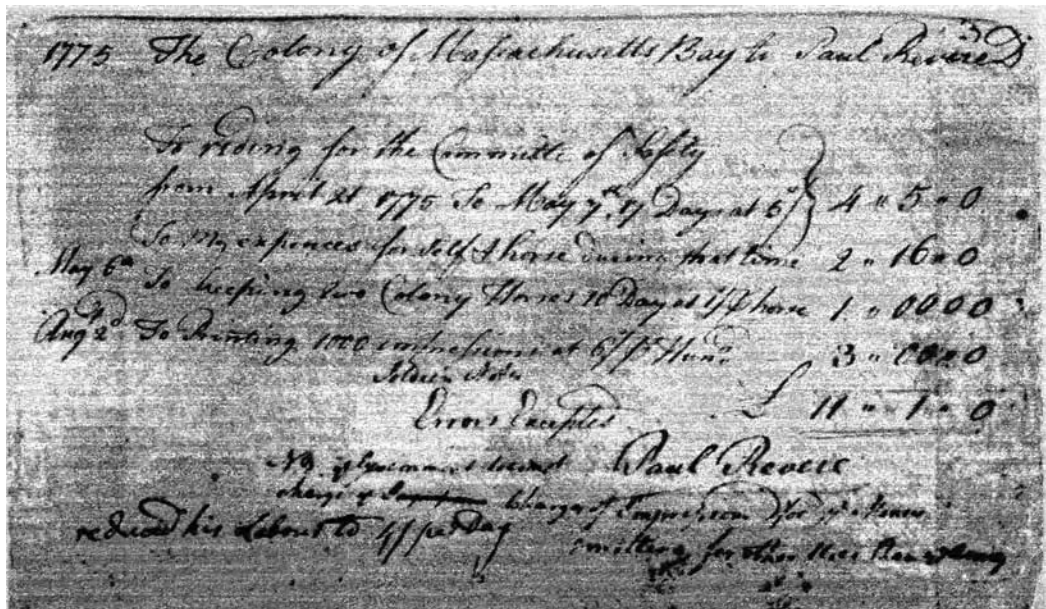 1775 The Colony of Massachusetts Bay to Paul Revere Dr
To riding for the Committe of Safty
from April 21 1775 To May 7th, 17 Days at 5/ 4 " 5 " 0
To my expences for self & horse during that time 2 " 16 " 0
May 6th To keeping two Colony Horses 10 Day at 1/ pr horse 1 " 00 00
Augst 2d To Printing 1000 impressions at 6/ pr Hund. 3 " 00 " 0
Soldiers Notes
Errors Excepted £ 11 " 1 " 0
NB Paul Revere
charge of charge of Impression
reduced his Labour to 4/ per Day for other